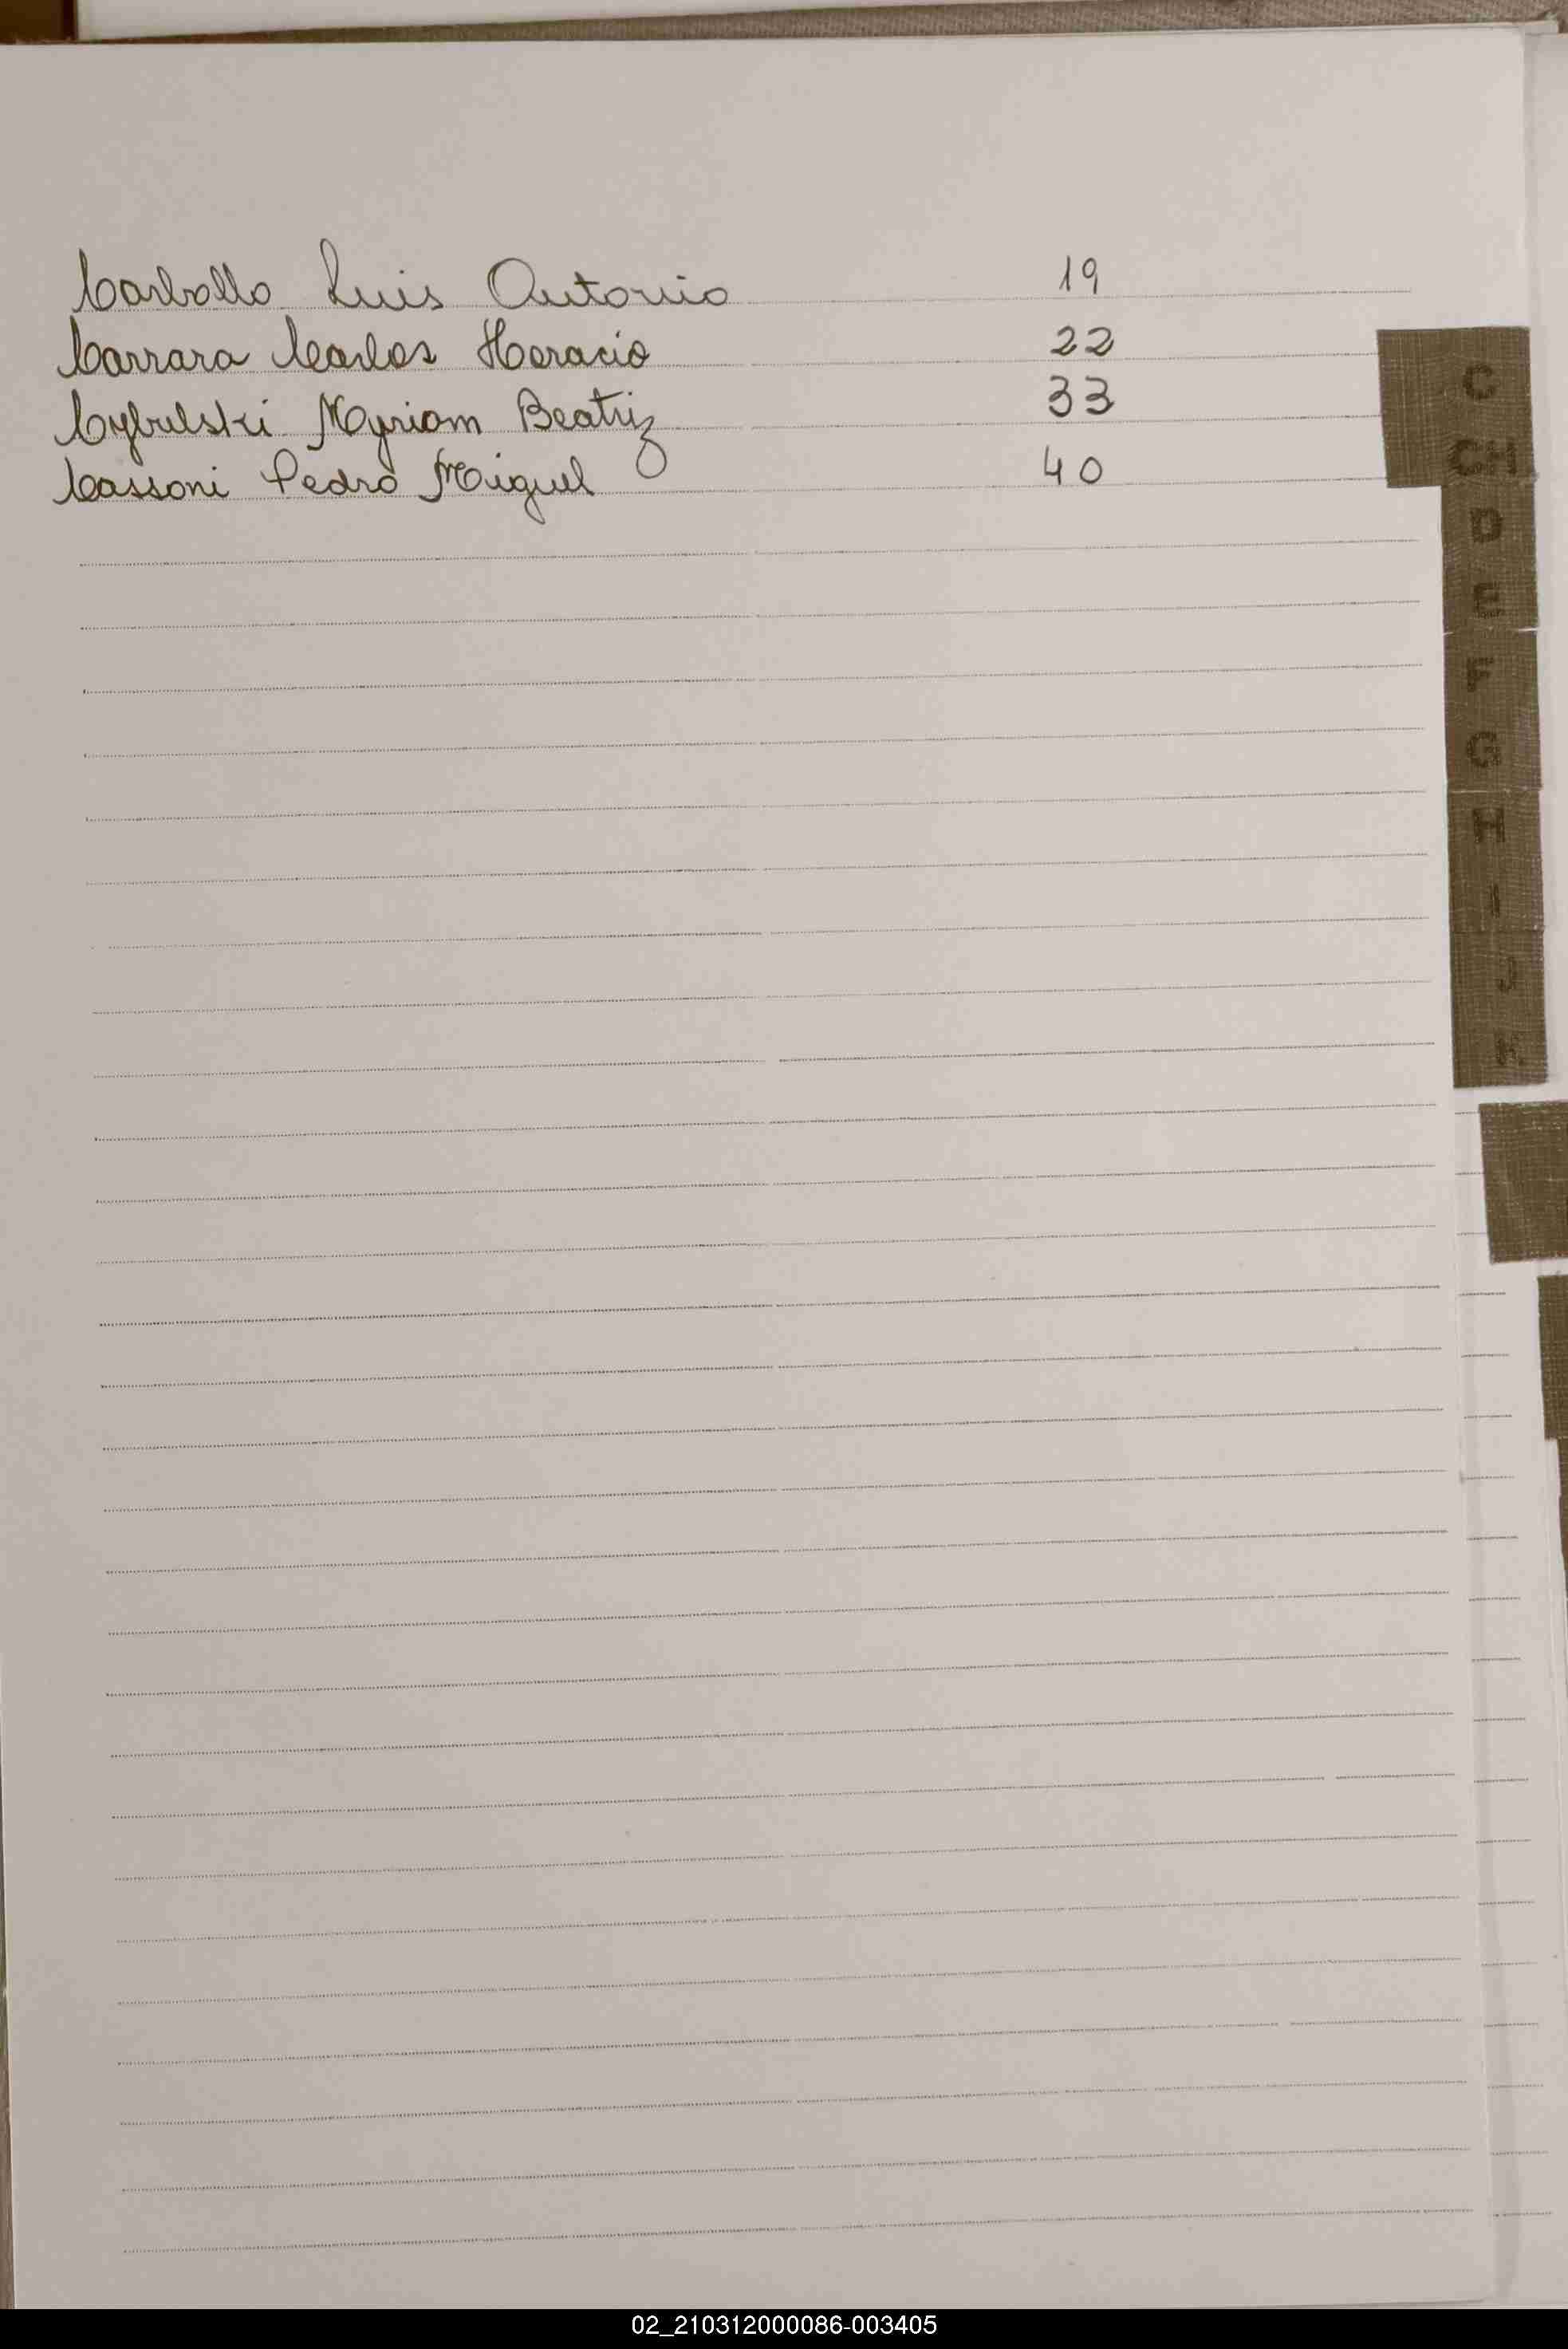 Carballo Luis Antonio 19
Carrara Carlos Horacio 22
Cybulski Myriam Beatriz 33
Cassoni Pedro Miguel 40
C
CH
D
E
F
G
H
I
J
K
02_210312000086-003405